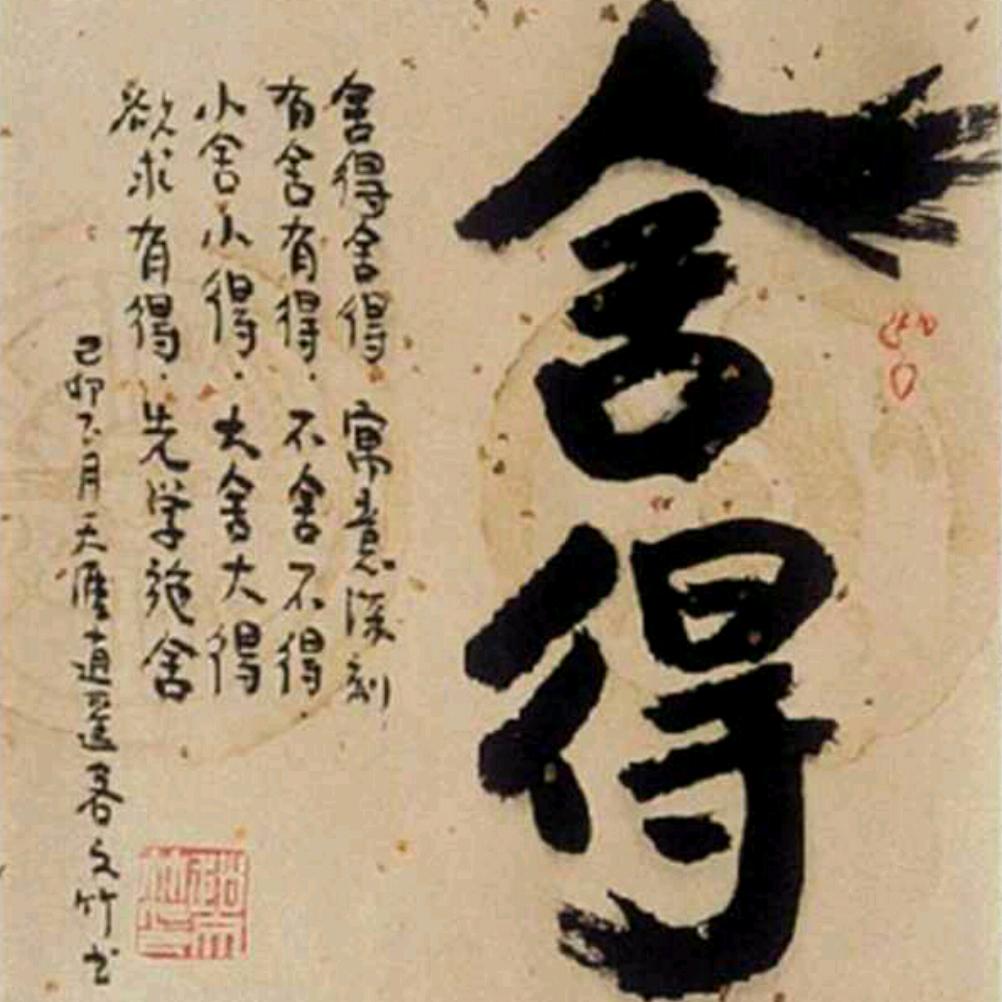 舍得
舍得舍得 寓意深刻
有舍有得·不舍不得
小舍小得·大舍大得
欲求有得·先学施舍
己卯六月天涯逍遥客文竹书